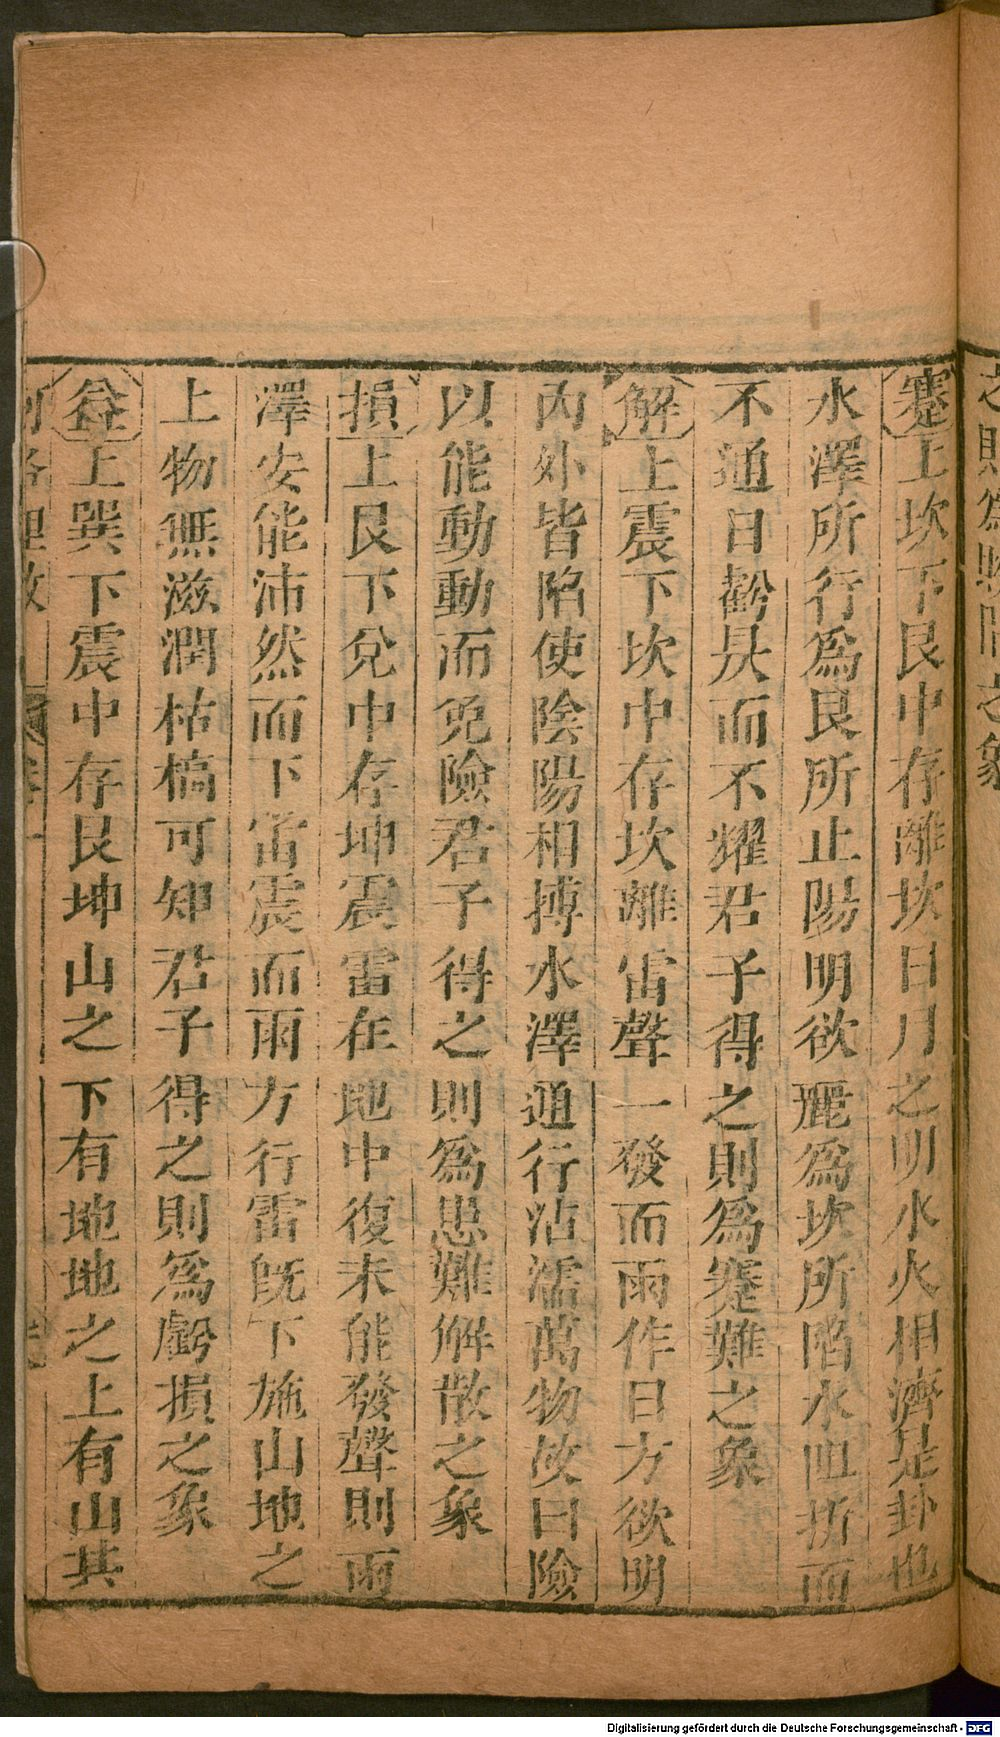 之則為睽隔之象
蹇上坎下艮中存離坎日月之明水火相濟是卦也
水澤所行爲艮所止陽明欲麗爲坎所陷水阻折而
不通日虧昃而不耀君子得之則爲蹇難之象
解上震下坎中存坎離雷聲一發而雨作日方欲明
內外皆陷使陰陽相搏水澤通行沾濡萬物故曰險
以能動動而免險君子得之則爲患難解散之象
損上艮下兌中存坤震雷在地中復未能發聲則雨
澤安能沛然而下雷震而雨方行雷既下施山地之
上物無滋潤枯槁可知君子得之則爲虧損之象
益上巽下震中存艮坤山之下有地地之上有山其
河洛理數
Digitalisierung gefördert durch die Deutsche Forschungsgemeinschaft - DFG